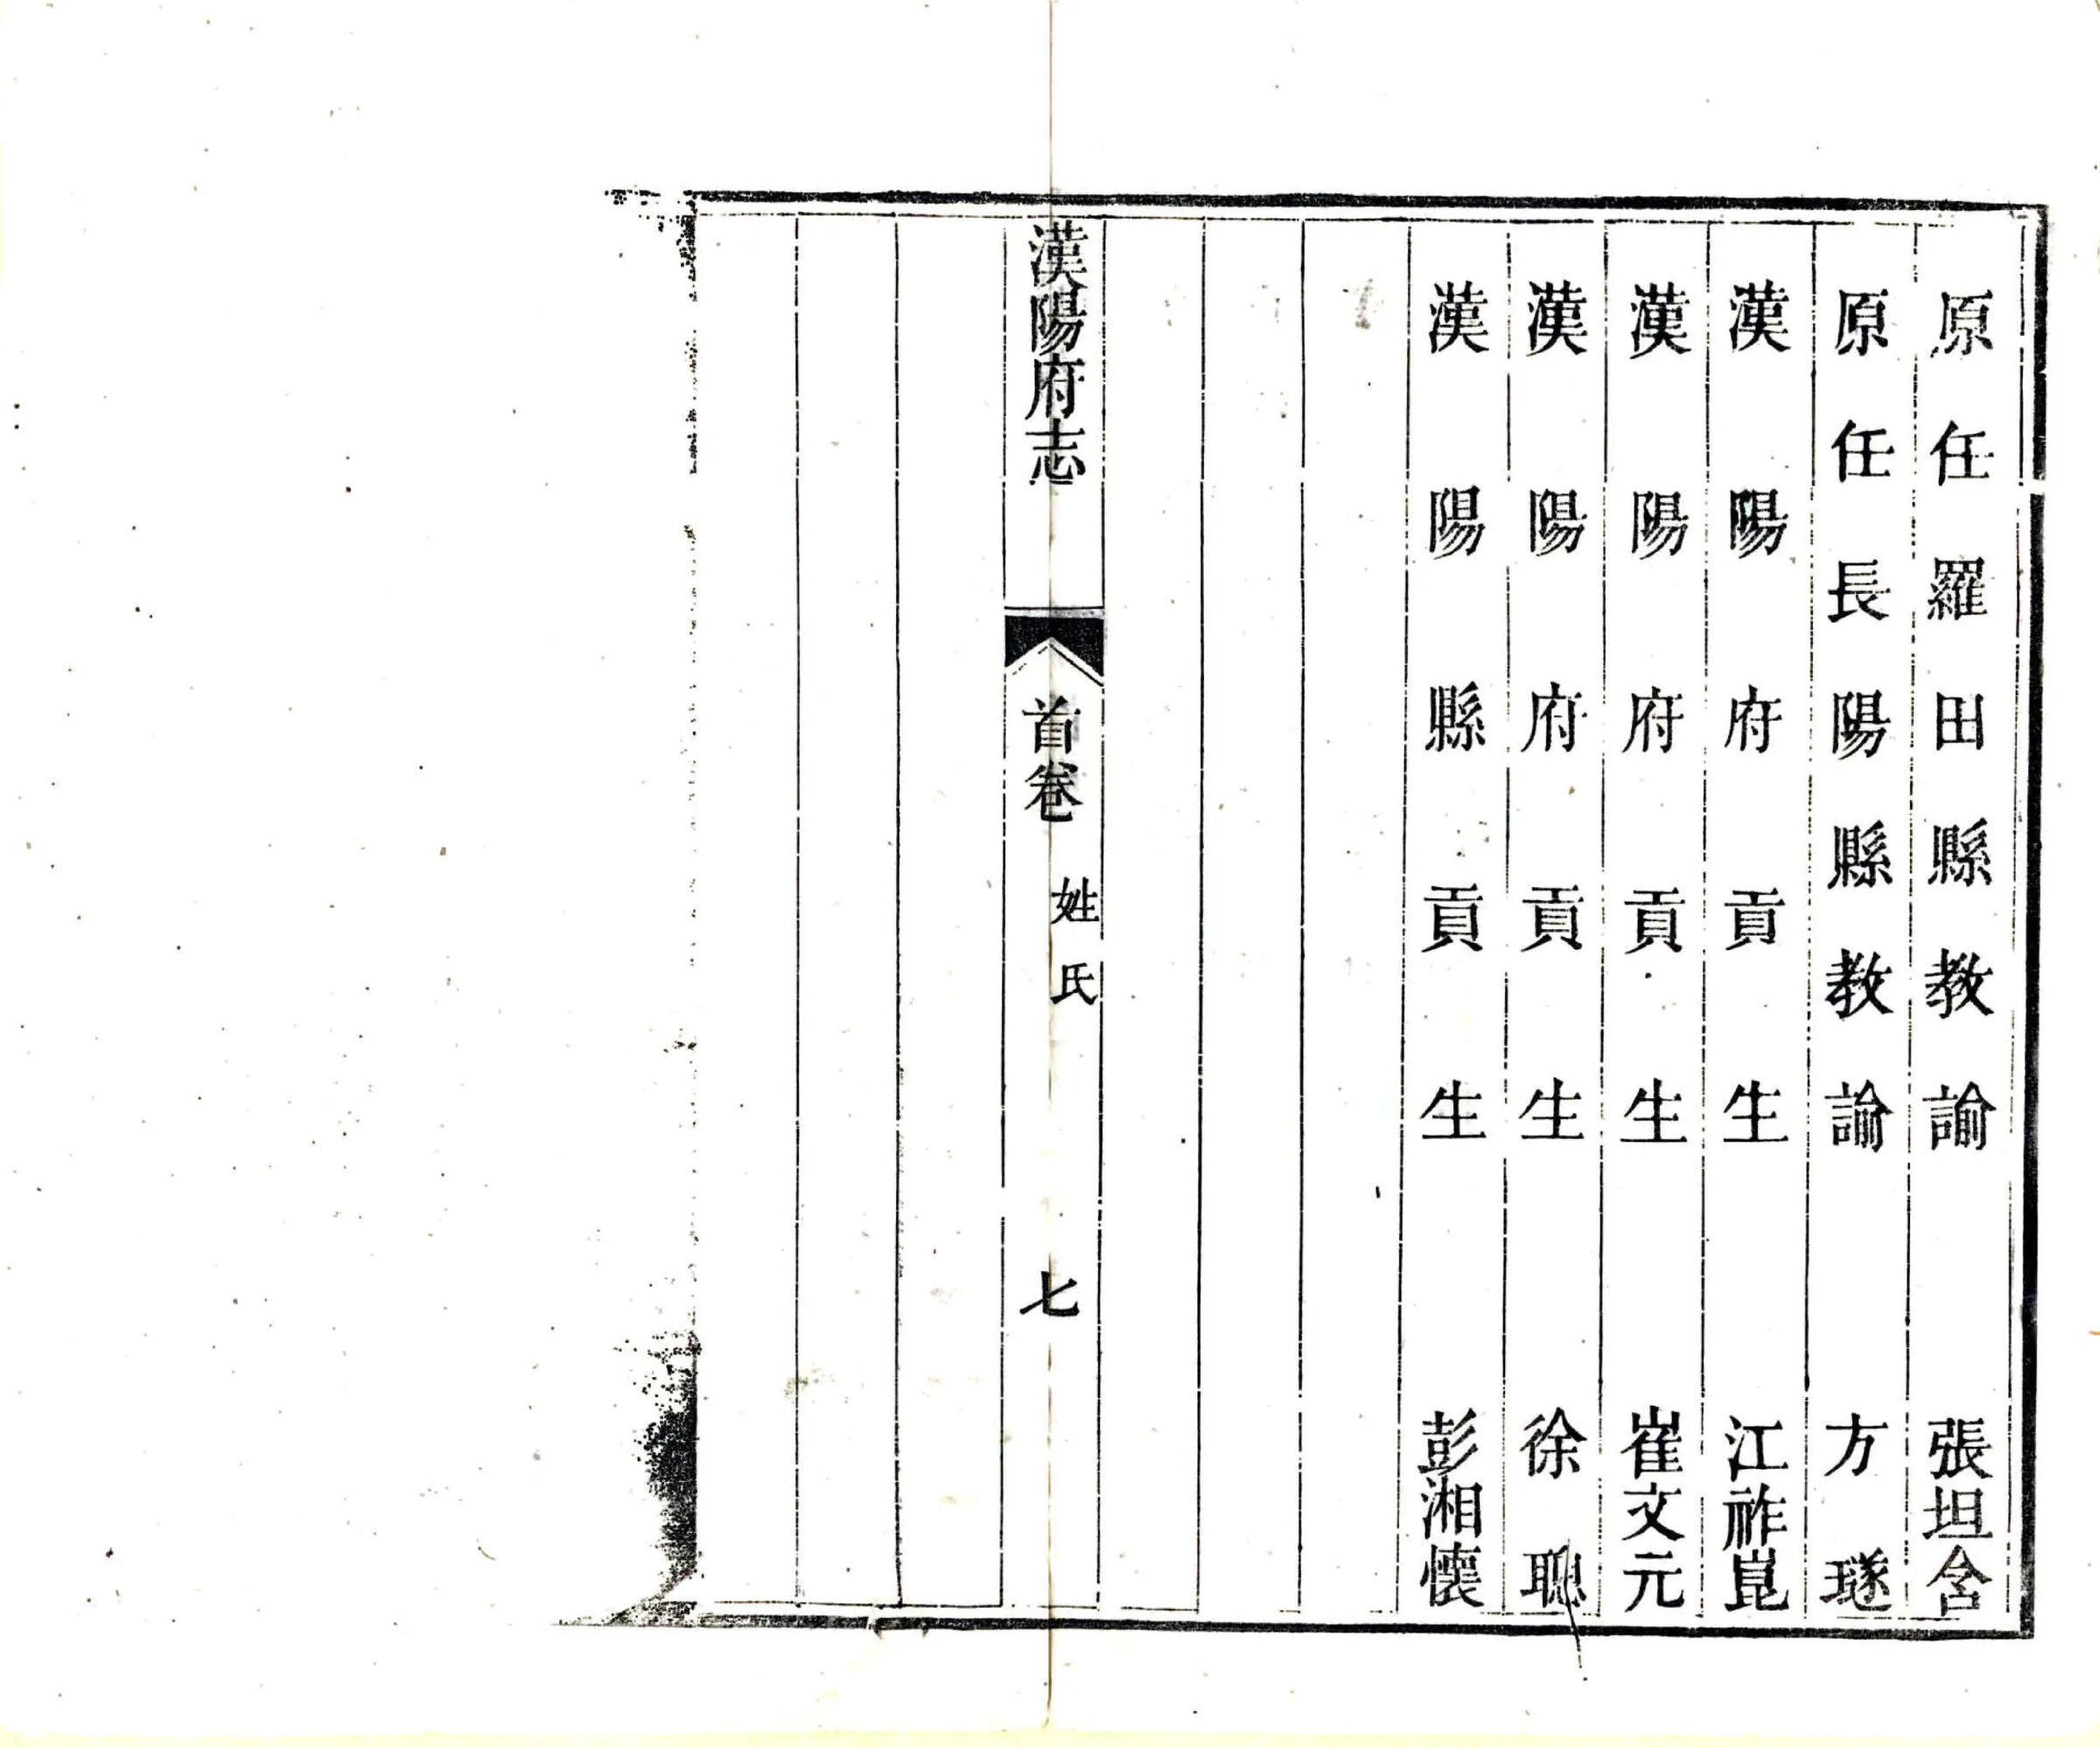 原任羅田縣教諭 張坦含
原任長陽縣教諭 方璲
漢陽府貢生 江祚崑
漢陽府貢生 崔文元
漢陽府貢生 徐聰
漢陽縣貢生 彭湘懷
漢陽府志 首卷 姓氏 七